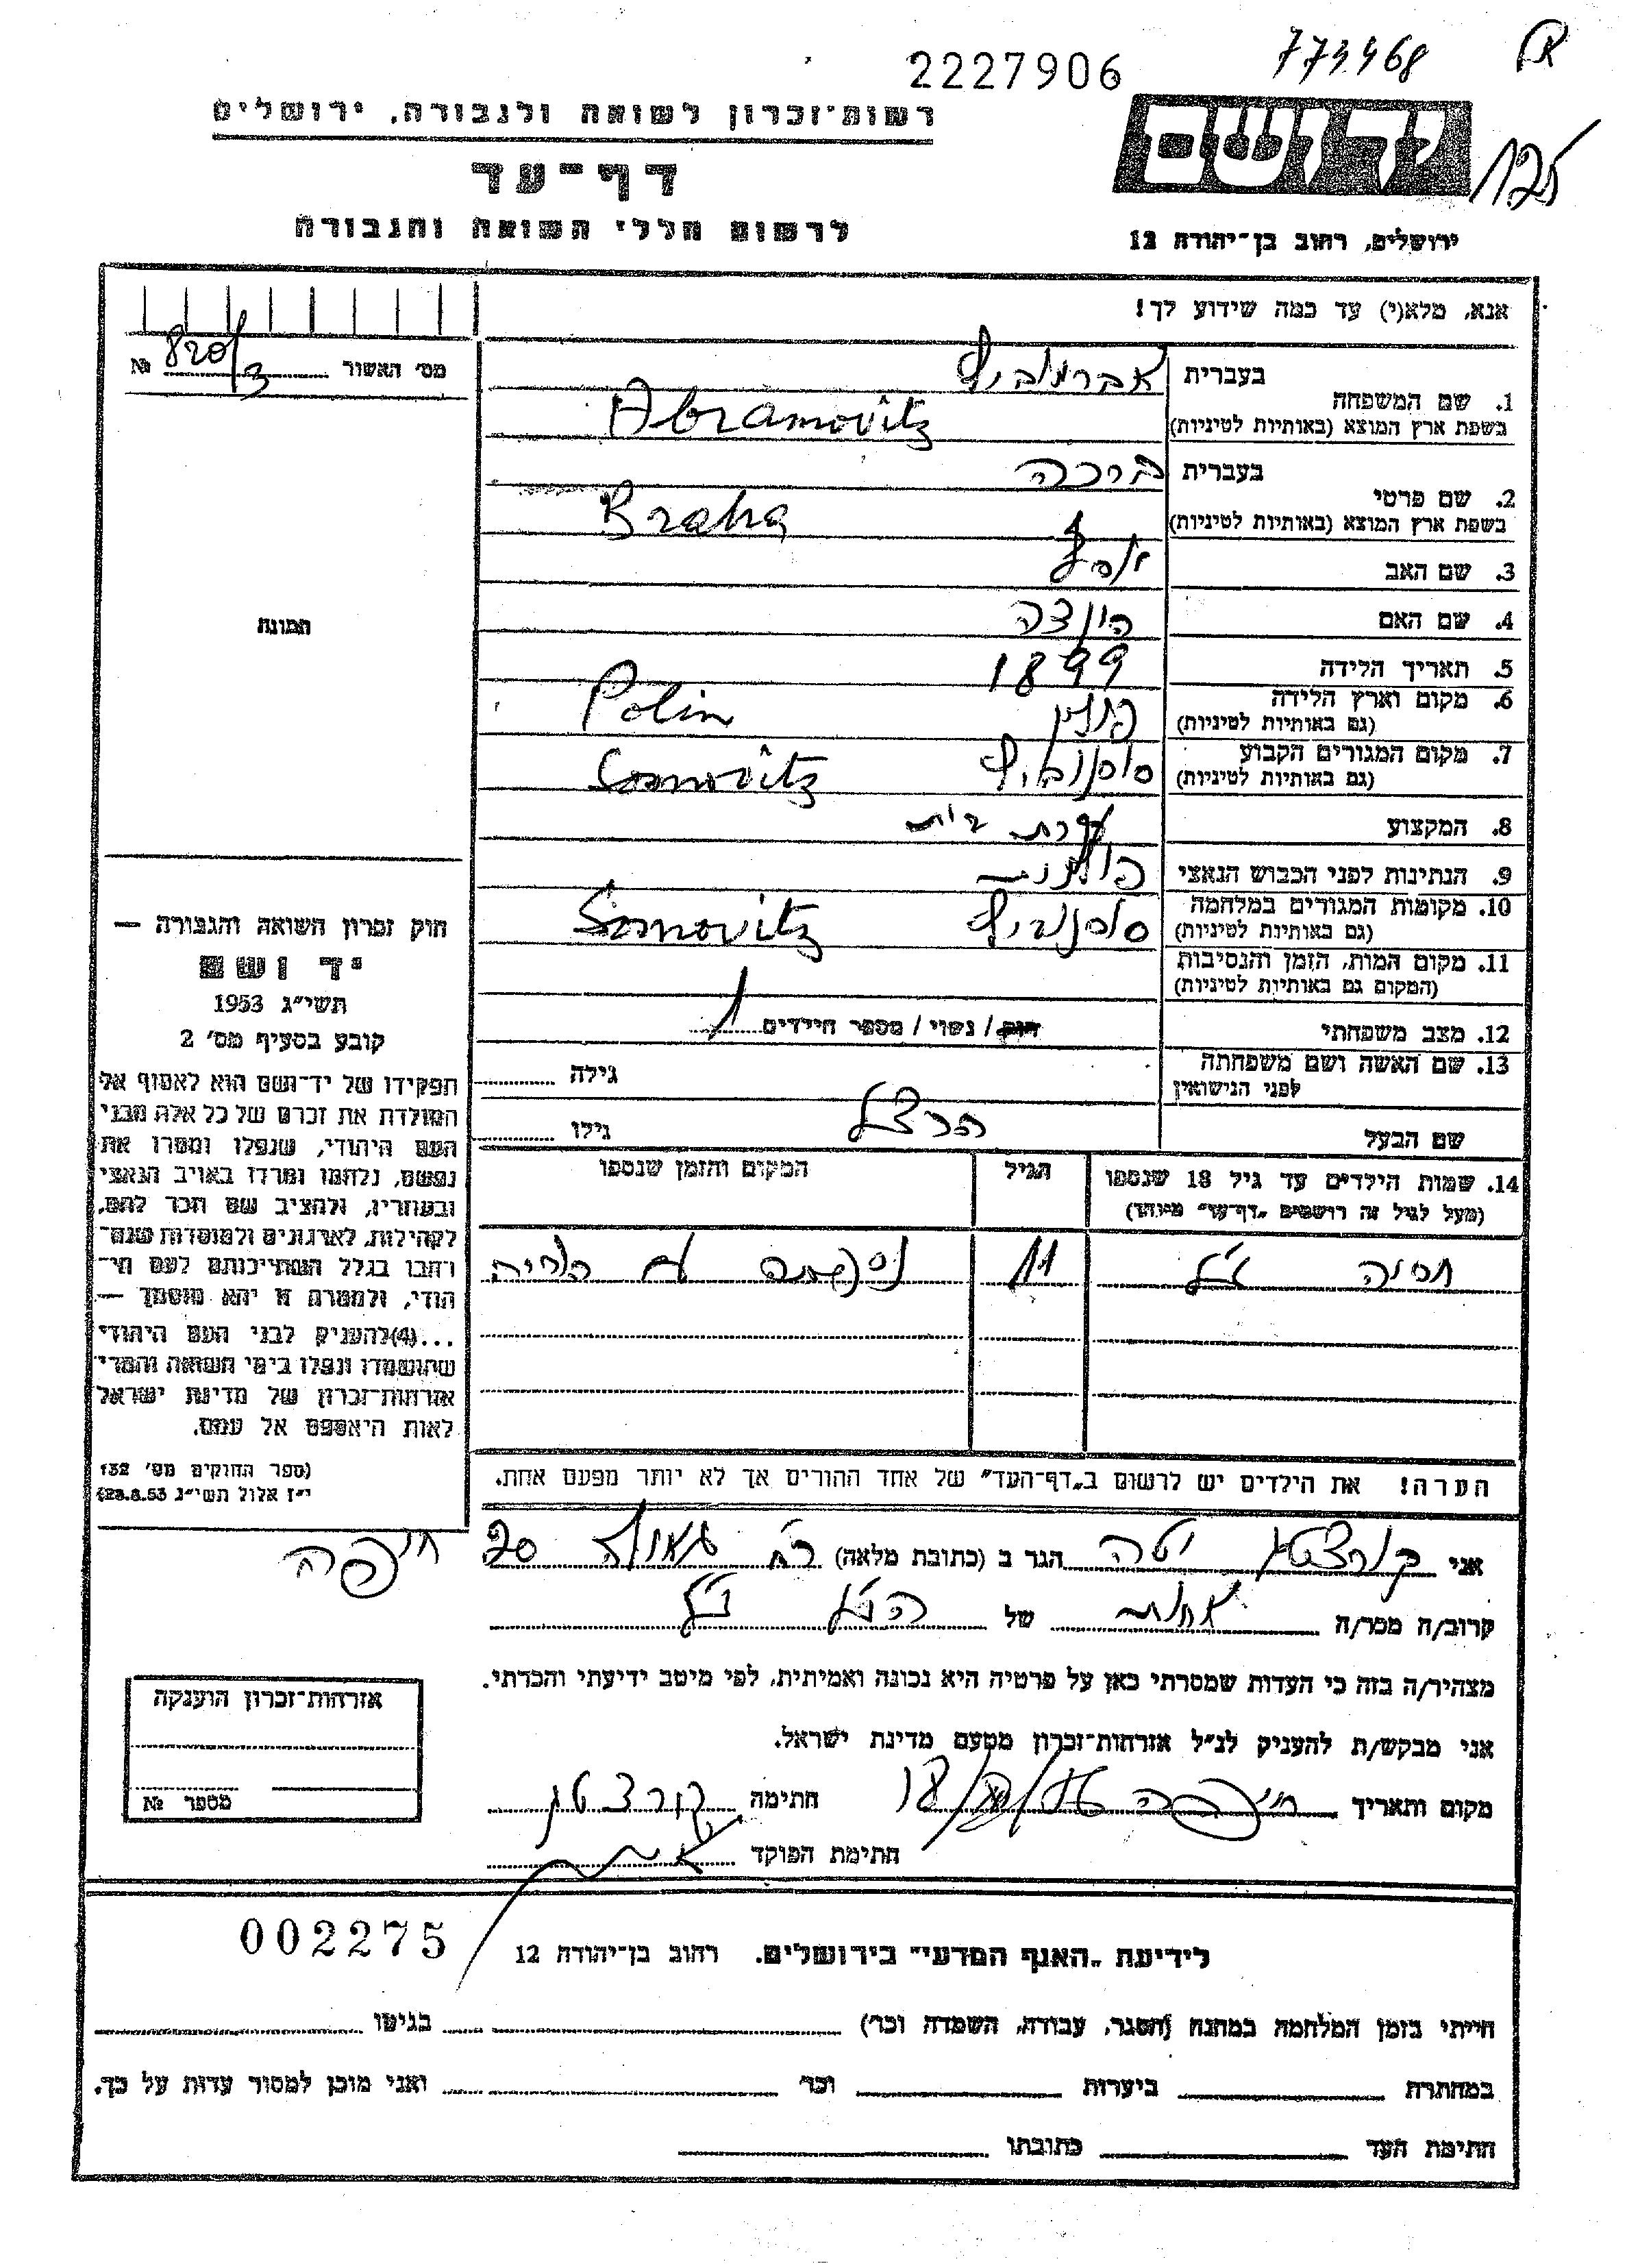 2227906
773468
רשות־זכרון לשואה ולגבורה, ירושלים
יד ושם
125
דף־עד
לרשום חללי השואה והגבורה
ירושלים, רחוב בן־יהודה 12
אנא, מלא(י) עד כמה שידוע לך!
מס' האשור 820/3 №
1. שם המשפחה
בעברית אברמוביץ
בשפת ארץ המוצא (באותיות לטיניות) Abramovitz
2. שם פרטי
בעברית ברכה
בשפת ארץ המוצא (באותיות לטיניות) Braha
3. שם האב יוסף
4. שם האם
5. תאריך הלידה 1899
6. מקום וארץ הלידה פולין Polin
(גם באותיות לטיניות)
7. מקום המגורים הקבוע סוסנוביץ Sosnovitz
(גם באותיות לטיניות)
8. המקצוע עקרת בית
9. הנתינות לפני הכבוש הנאצי פולנית
10. מקומות המגורים במלחמה סוסנוביץ Sosnovitz
(גם באותיות לטיניות)
11. מקום המות, הזמן והנסיבות
(המקום גם באותיות לטיניות)
12. מצב משפחתי רווק / נשוי / מספר הילדים 1
13. שם האשה ושם משפחתה
לפני הנישואין
גילה
שם הבעל הרצל
גילו
14. שמות הילדים עד גיל 18 שנספו
(מעל לגיל זה רושמים „דף־עד" מיוחד)
הגיל
המקום והזמן שנספו
11 נספתה עם הוריה
הערה! את הילדים יש לרשום ב„דף־העד" של אחד ההורים אך לא יותר מפעם אחת.
תמונה
חוק זכרון השואה והגבורה —
יד ושם
תשי"ג 1953
קובע בסעיף מס' 2
תפקידו של יד־ושם הוא לאסוף אל
המולדת את זכרם של כל אלה מבני
העם היהודי, שנפלו ומסרו את
נפשם, נלחמו ומרדו באויב הנאצי
ובעוזריו, ולהציב שם וזכר להם,
לקהילות, לארגונים ולמוסדות שנח־
רבו בגלל השתייכותם לעם הי־
הודי, ולמטרה זו יהא מוסמך —
...(4)להעניק לבני העם היהודי
שהושמדו ונפלו בימי השואה והמרי
אזרחות־זכרון של מדינת ישראל
לאות היאספם אל עמם.
(ספר החוקים מס' 132
י"ז אלול תשי"ג 28.8.53)
אני קורצטג יטה הגר ב (כתובת מלאה) רח' גאולה 20 חיפה
קרוב/ה מכר/ה אחות של הנ"ל
מצהיר/ה בזה כי העדות שמסרתי כאן על פרטיה היא נכונה ואמיתית, לפי מיטב ידיעתי והכרתי.
אני מבקש/ת להעניק לנ"ל אזרחות־זכרון מטעם מדינת ישראל.
מקום ותאריך חיפה חתימה
חתימת הפוקד
אזרחות־זכרון הוענקה
מספר №
002275
לידיעת „האגף המדעי" בירושלים. רחוב בן־יהודה 12
הייתי בזמן המלחמה במחנה (הסגר, עבודה, השמדה וכר') בגיטו
במחתרת ביערות וכר' ואני מוכן למסור עדות על כך.
חתימת העד כתובתו